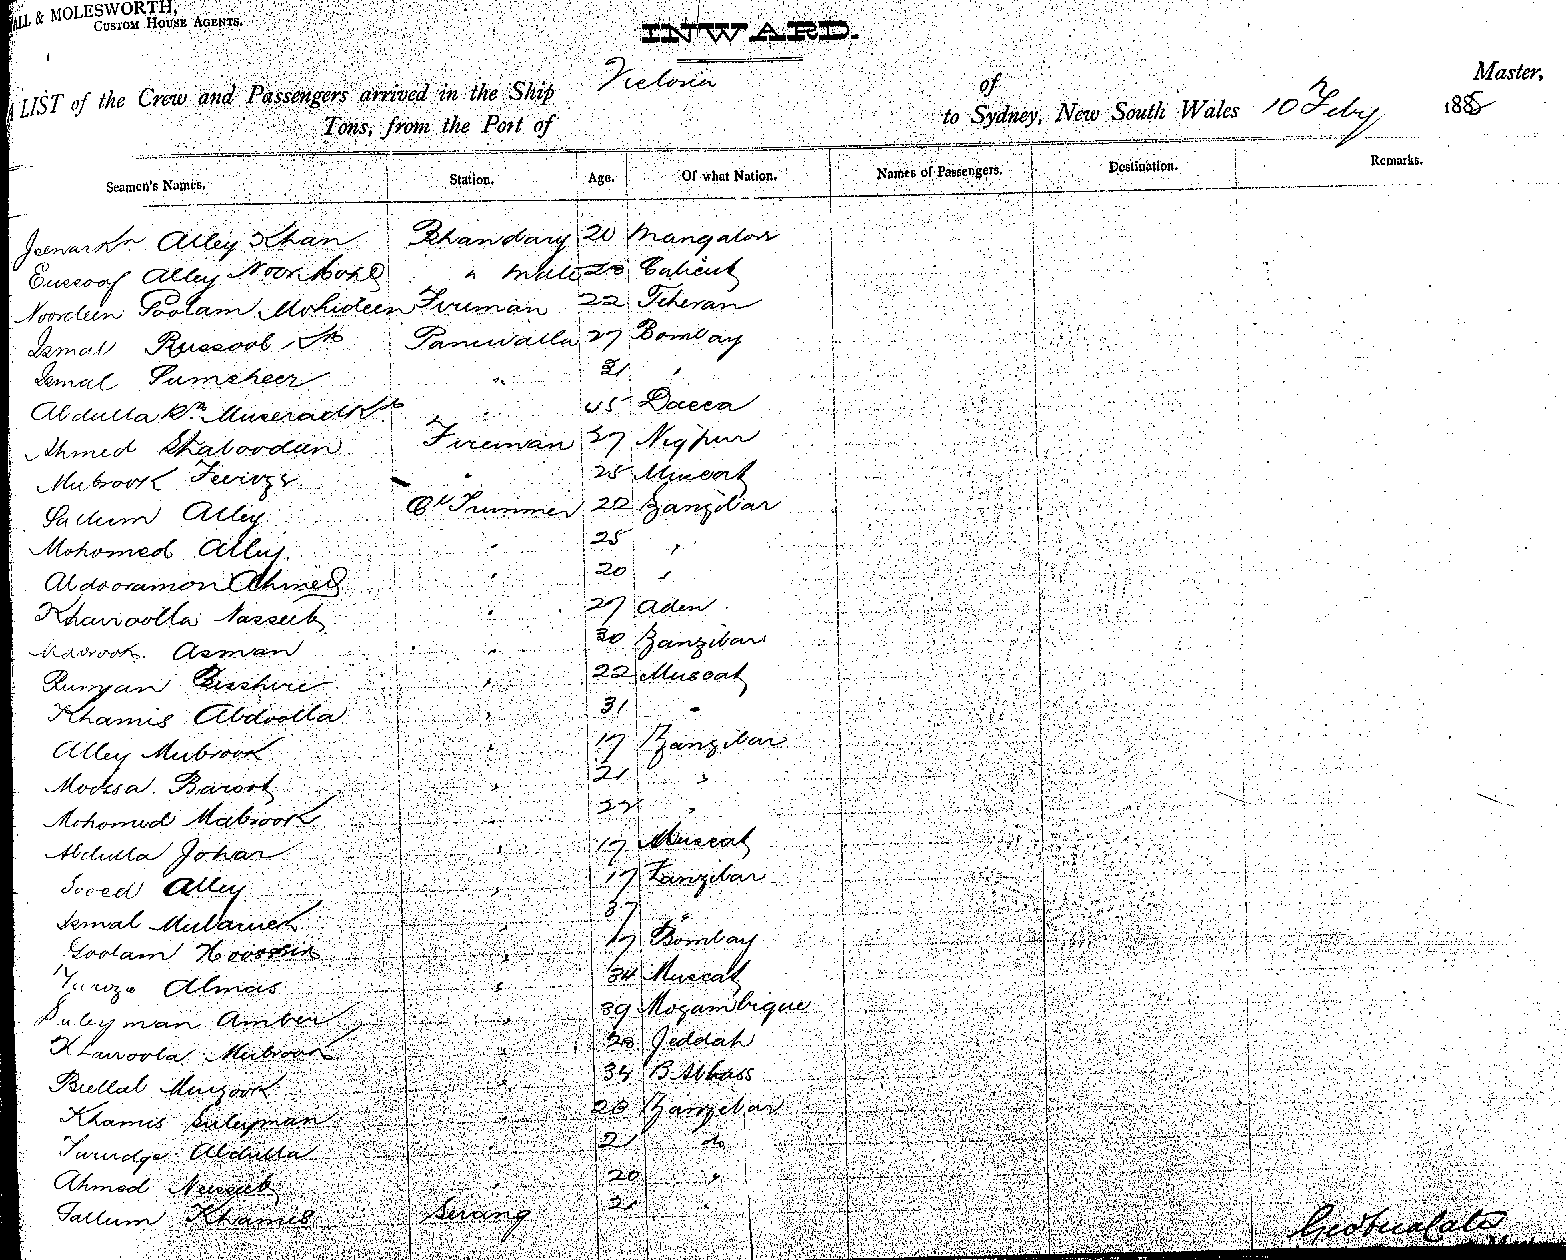 ALL & MOLESWORTH,
CUSTOM HOUSE AGENTS.
INWARD.
A LIST of the Crew and Passengers arrived in the Ship Victoria of Master,
Tons, from the Port of to Sydney, New South Wales 10 Feby 1885
Seamen's Names. Station. Age. Of what Nation. Names of Passengers. Destination. Remarks.
Alley Khan Bhandary 20 Mangalor
Eussoof Alley " Mate Calicut
Noordeen Goolam Mohideen Fireman 22 Teheran
Ismal Russool Paniwalla 27 Bombay
Ismal Sumsheer " 21 "
Abdulla 45 Dacca
Ahmed Shaboodeen Fireman 27 Nigpur
Mubrook " 25 Muscat
Sallum Alley Cl Trimmer 22 Zanzibar
Mohomed Alley " 25 "
Abdooramon Ahmed " 20 "
Khairoolla Nasseeb " 27 Aden
Mabrook Asman " 30 Zanzibar
" 22 Muscat
Khamis Abdoolla " 31 "
Alley Mubrook " 17 Zanzibar
Moossa Baroot " 21 "
Mohomed Mabrook " 22 "
Abdulla Johar " 17 Muscat
Sooed Alley " 17 Zanzibar
Ismal Mubaruck " 37 "
Goolam Hoossein " 17 Bombay
Almas " 34 Muscat
Suleyman Amber " 39 Mozambique
Khairoola Mubrook " 28 Jeddah
Bullal " 34 B Abbass
Khamis Suleyman " 20 Zanzibar
Abdulla " 21 do
Ahmed Nasseeb " 20 "
Sallum Khamis Serang 21 "